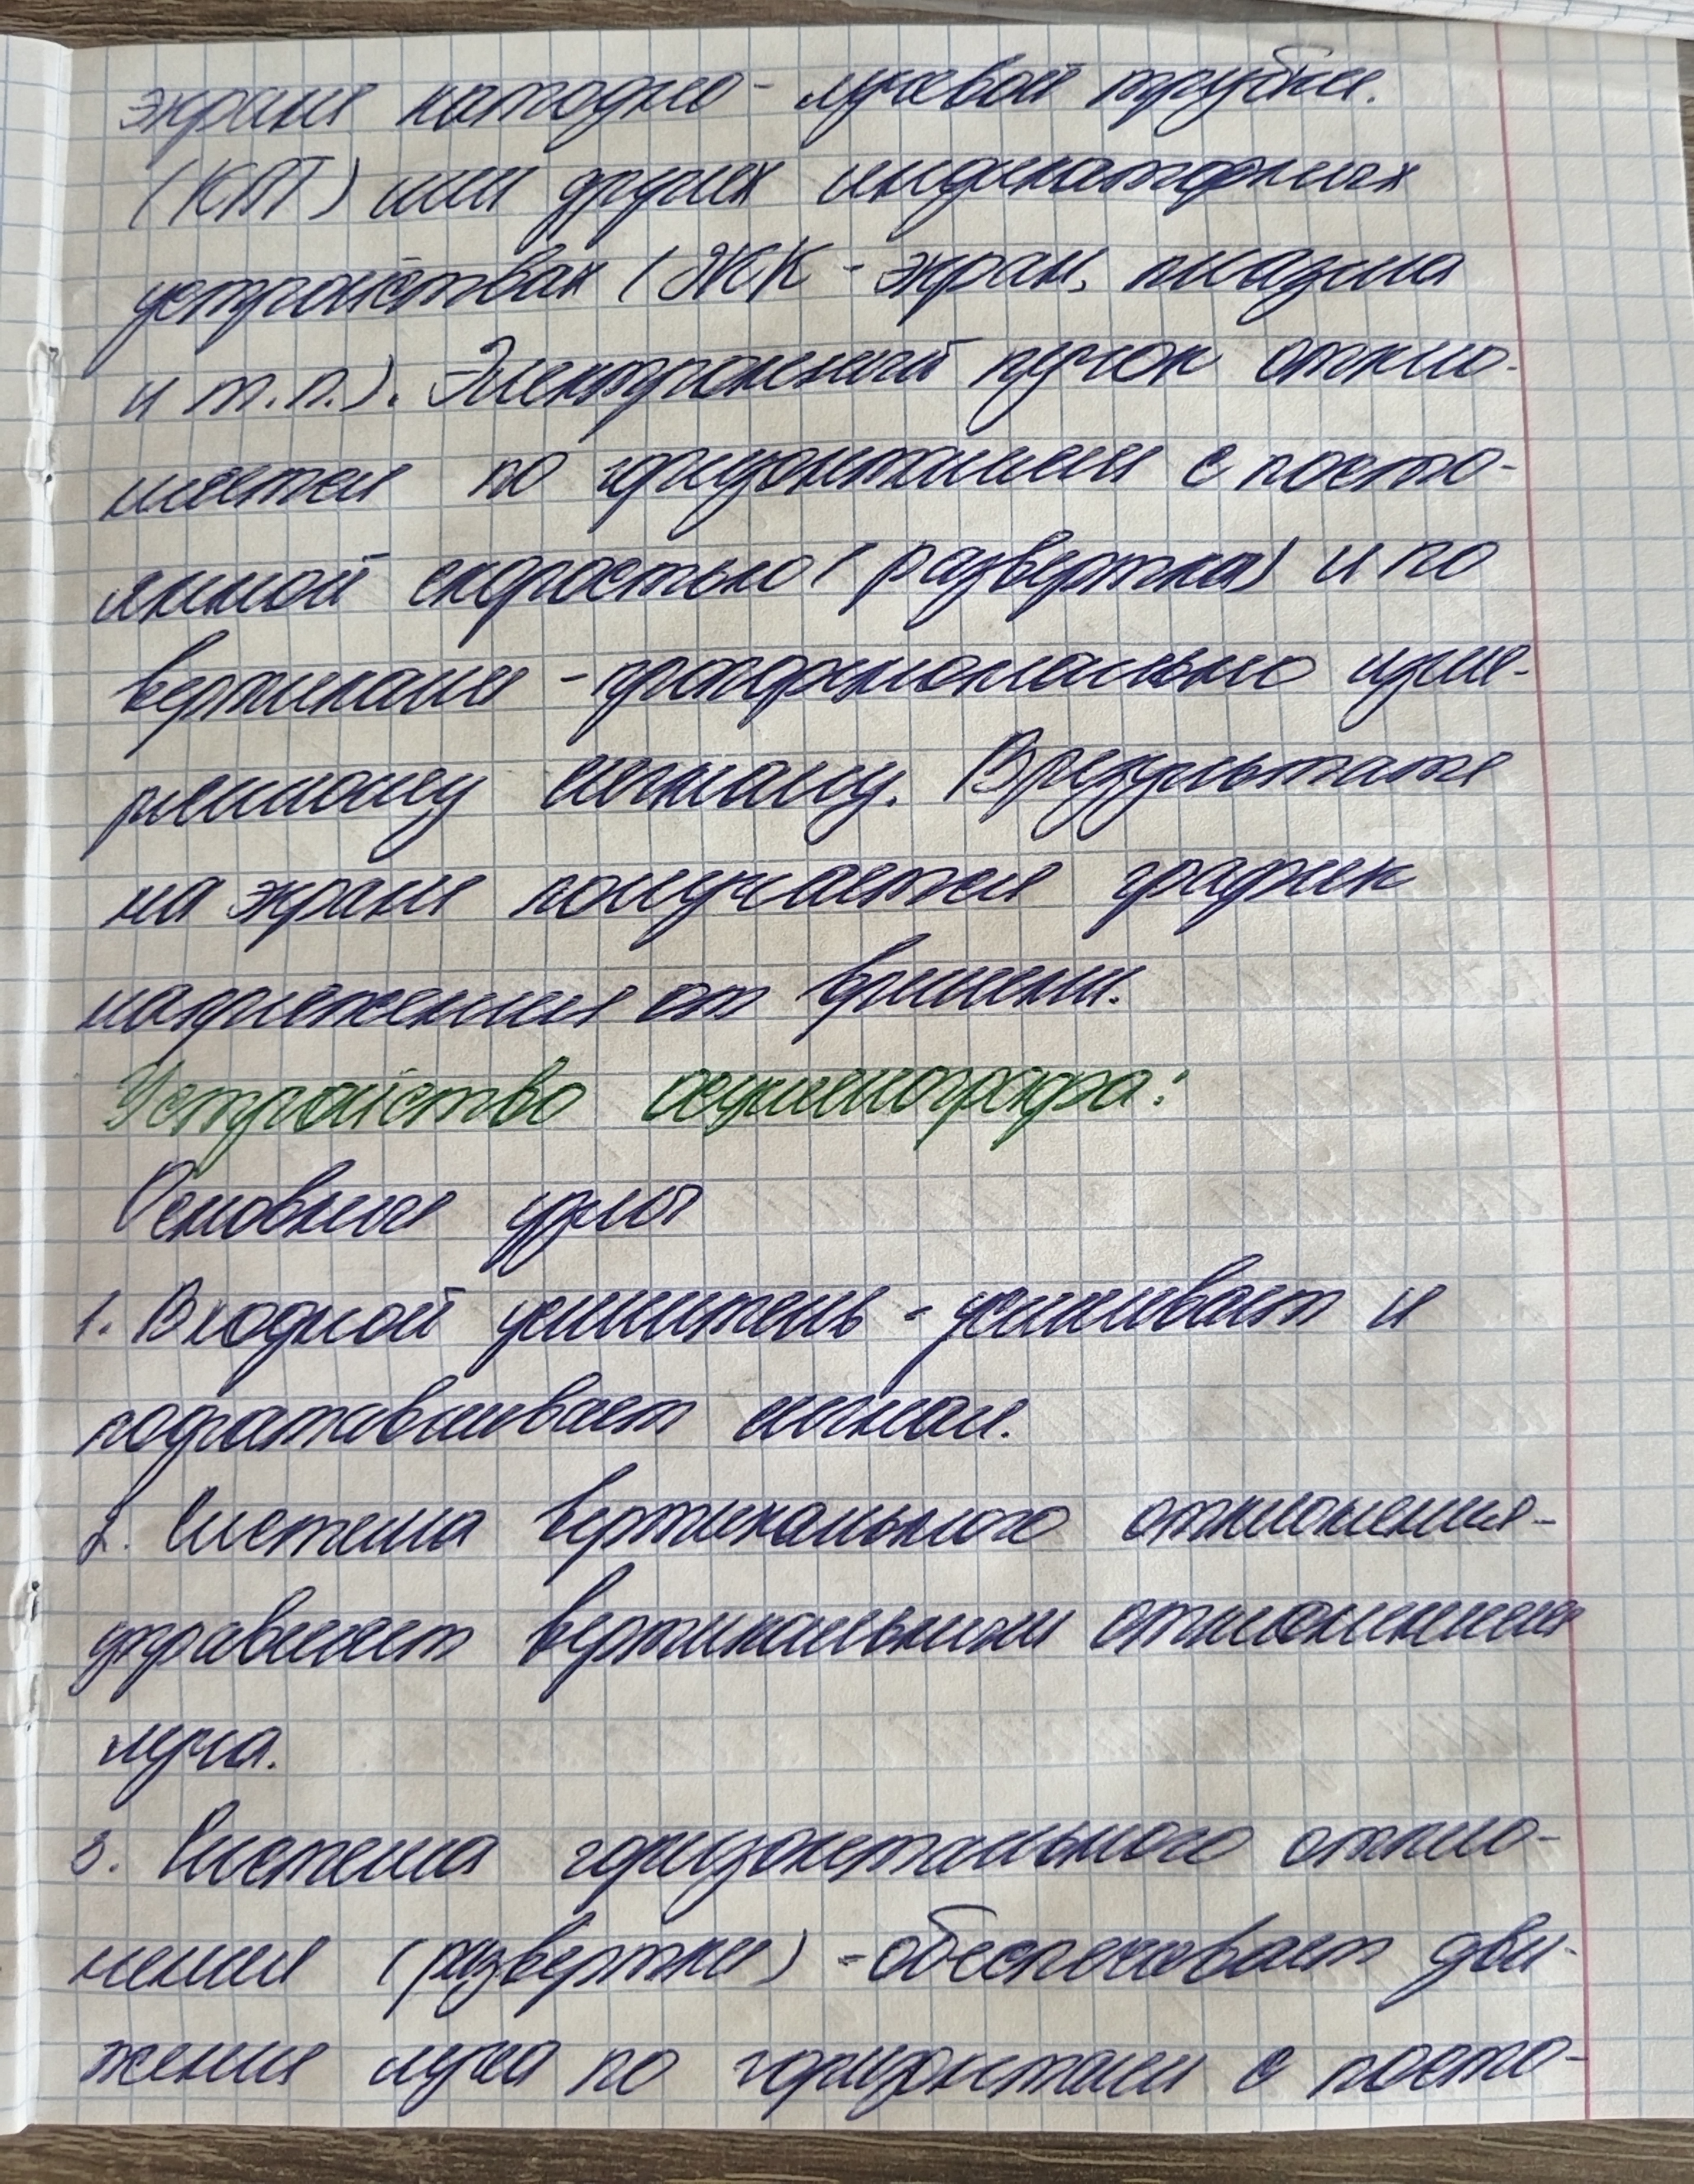 экране катодно-лучевой трубки.
(КЛТ) или других индикаторных
устройствах (ЖК-экран, плазма
и т.п.). Электронный пучок откло-
няется по горизонтали с посто-
янной скоростью (развертка) и по
вертикали - пропорционально изме-
ренному сигналу. В результате
на экране получается график
напряжения от времени.
Устройство осциллографа:
Основные узлы
1. Входной усилитель - усиливает и
подготавливает сигнал.
2. Система вертикального отклонения-
управляет вертикальным отклонением
луча.
3. Система горизонтального откло-
нения (развертки) - обеспечивает дви-
жения луча по горизонтали с посто-